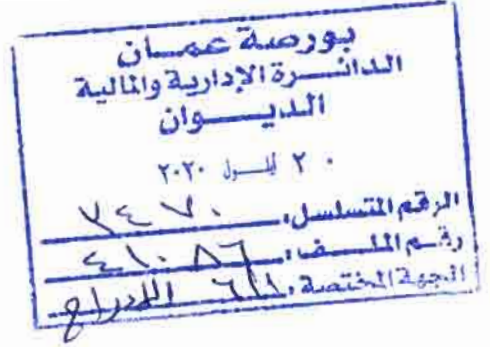 بورصة عمان
الدائرة الإدارية والمالية
الديوان
٠ ٢ أيلول ٢٠٢٠
الرقم المتسلسل:
رقم الملف: ٤١٠٨٦
الجهة المختصة: الإدراج